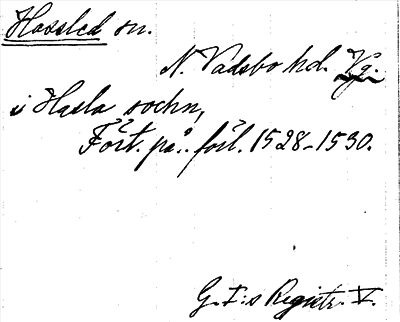 Hassled sn.
N. Vadsbo hd. Vg.
i Hasla sochn,
Fört. på.. förl. 1528-1530.
G. I:s Registr. V.